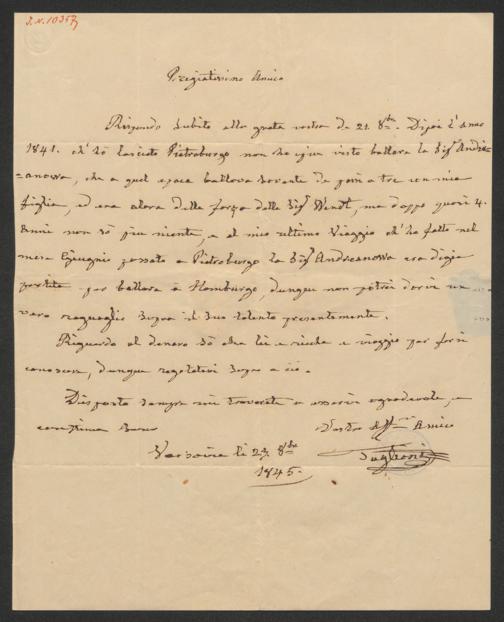 I.N. 10357
Pregiatissimo Amico
Rispondo subito alla grata vostra de 21. 8bre. Dopo l'anno
1841. ch'ho lasciato Pietroburgo non ho più visto ballare la Sigra Andre=
=anowa, che a quel epoca ballava sovente da passi a tre con mia
figlia, ed era alora della forza della Sigra Wendt, ma doppo quasi 4.
anni non sò più niente, e al mio ultimo viaggio ch'ho fatto nel
mese Giugnio passato a Pietroburgo la Sigra Andreanowa era digia
partita per ballare à Hamburgo, dunque non potrei darvi un
vero raguaglio sopra il suo talento presentemente.
Riguardo al denaro sò che lei e ricca e viaggia per farsi
conoscere, dunque regolatevi sopra a ciò.
Disposto sempre mi troverete a esservi agradevole, e
sono
Vostro Affmo Amico
Varsovia li 8bre
1845.
Taglioni